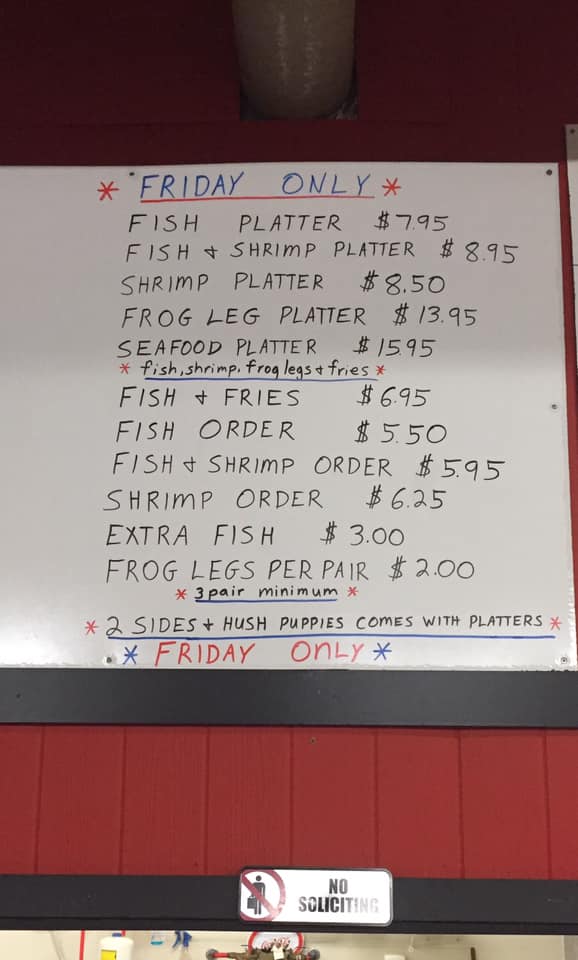 * FRIDAY ONLY *
FISH PLATTER $7.95
FISH & SHRIMP PLATTER $8.95
SHRIMP PLATTER $8.50
FROG LEG PLATTER $13.95
SEAFOOD PLATTER $15.95
* fish, shrimp, frog legs & fries *
FISH & FRIES $6.95
FISH ORDER $5.50
FISH & SHRIMP ORDER $5.95
SHRIMP ORDER $6.25
EXTRA FISH $3.00
FROG LEGS PER PAIR $2.00
* 3 pair minimum *
* 2 SIDES & HUSH PUPPIES COMES WITH PLATTERS *
* FRIDAY ONLY *
NO
SOLICITING